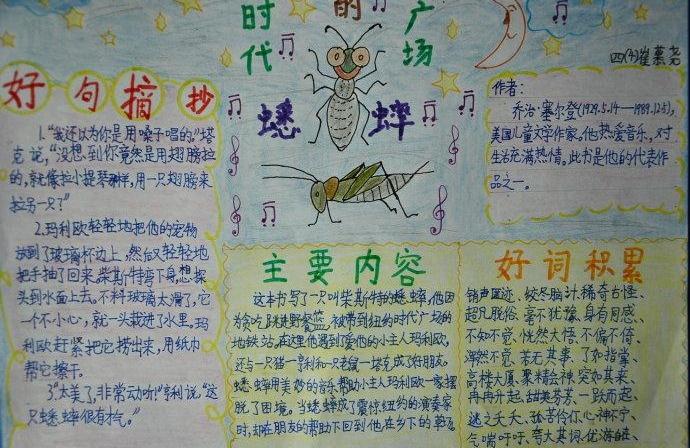 时代的广场
蟋蟀
四(4)崔慕尧
好句摘抄
1."我还以为你是用嗓子唱的,"塔
克说,"没想到你竟然是用翅膀拉
的,就像拉小提琴那样,用一只翅膀来
拉另一只?"
2.玛利欧轻轻地把他的宠物
放到了玻璃杯边上,然后又轻轻地
把手抽了回来。柴斯特弯下身,想探
头到水面上去。不料玻璃太滑了,它
一个不小心,就一头栽进了水里。玛
利欧赶紧把它捞出来,用纸巾
帮它擦干。
3."太美了,非常动听!"亨利说,"这
只蟋蟀很有才气。"
作者:
乔治·塞尔登(1929.5.14—1989.12.5),
美国儿童文学作家。他热爱音乐,对
生活充满热情。此书是他的代表作
品之一。
主要内容
这本书写了一只叫柴斯特的蟋蟀,他因
为贪吃跳进野餐篮,被带到纽约时代广场的
地铁站。在这里他遇到了爱他的小主人玛利欧,
还与一只猫—亨利和一只老鼠—塔克成了好朋友。
蟋蟀用美妙的音乐帮助小主人玛利欧一家摆
脱了困境。当蟋蟀成了震惊纽约的演奏家
时,却在朋友的帮助下回到他在乡下的
好词积累
销声匿迹、绞尽脑汁、稀奇古怪、
超凡脱俗、毫不犹豫、身有同感、
不知不觉、恍然大悟、不偏不倚、
浑然不觉、若无其事、了如指掌、
高楼大厦、聚精会神、突如其来、
冉冉升起、甜美芬芳、一跃而起、
逃之夭夭、孤苦伶仃、心神不宁、
气喘吁吁、夸大其词、优游自在、